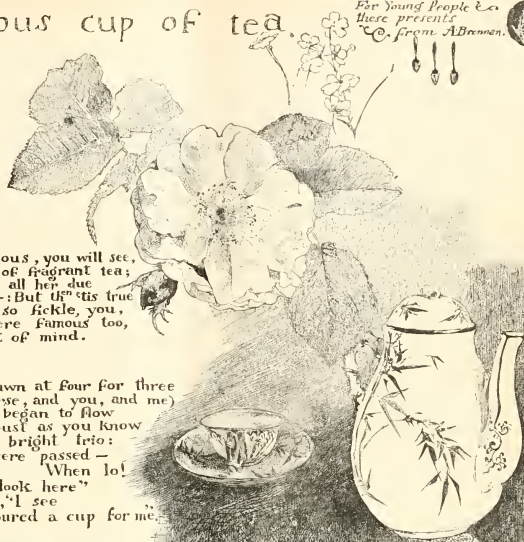 ous cup of tea.
For Young People &c.
these presents
from A Brennan.
ous, you will see,
of fragrant tea;
all her due
-: But thn 'tis true
so fickle, you,
ere famous too,
t of mind.
awn at four for three
se, and you, and me)
began to flow
ust as you know
bright trio:
ere passed –
When lo!
look here"
,"I see
oured a cup for me.